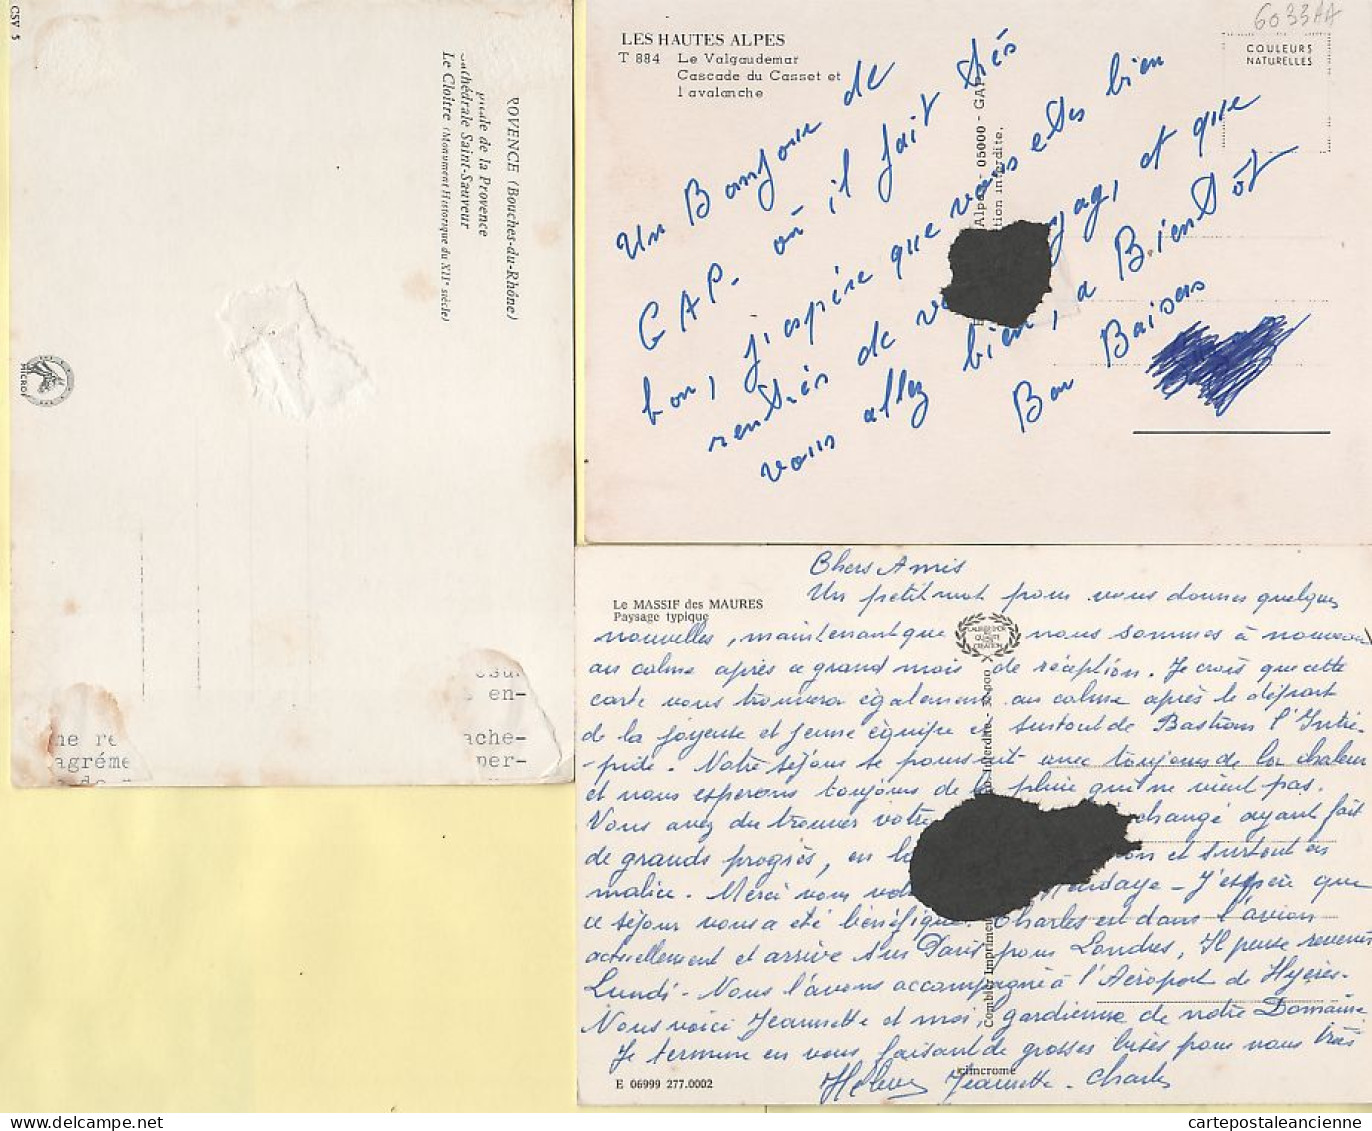 CSV 5
OVENCE (Bouches-du-Rhône)
de la Provence
Cathédrale Saint-Sauveur
Le Cloître (Monument Historique du XIIe siècle)
MICRO
en-
ne re
ache-
agréme
per-
6033AA
LES HAUTES ALPES
T 884 Le Valgaudemar
Cascade du Casset et
l avalanche
COULEURS
NATURELLES
Alpes - 05000 - GAP
tion interdite.
Un Bonjour de
GAP. où il fait très
bon, j'espère que vous etes bien
rentrés de vo yag, et que
vous allez bien, a Bientôt
Bon Baisers
Le MASSIF des MAURES
Paysage typique
Chers Amis
Un petit mot pour vous donner quelques
nouvelles, maintenant que nous sommes à nouveau
au calme après ce grand mois de réception. Je crois que cette
carte vous trouvera également au calme après le départ
de la joyeuse et jeune équipe et surtout de Bastian l'Intré-
-pide. Notre séjour se poursuit avec toujours de la chaleur
et nous esperons toujours de la pluie qui ne vient pas.
Vous avez du trouver votre changé ayant fait
de grands progrès, en la ion et surtout en
malice. Merci vom vot Hendaye - J'espère que
ce séjour vous a été bénéfique. Charles est dans l'avion
actuellement et arrive sur Paris pour Londres, Il pense revenir
Lundi - Nous l'avons accompagné à l'Aéroport de Hyères-
Nous voici Jeannette et moi, gardienne de notre Domaine
Je termine en vous faisant de grosses bises pour vous très
Jeannette - Charles
Combier Imprimeur
Interdite
cimcrome
E 06999 277.0002
cartepostaleancienne.com